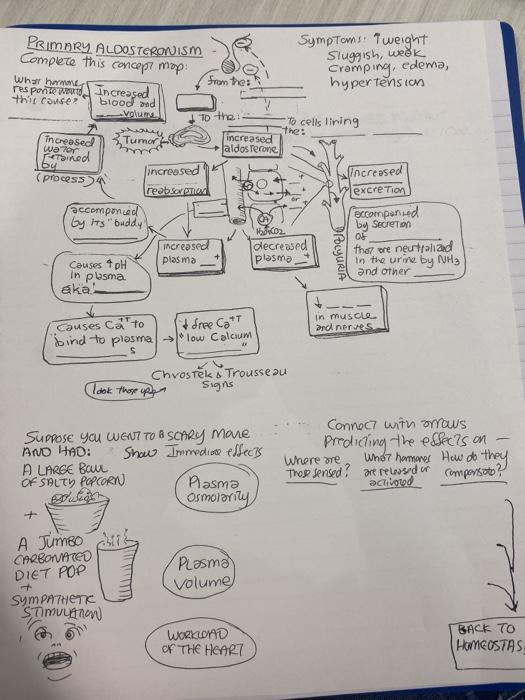 PRIMARY ALDOSTERONISM
Complete this concept map:
Symptoms: ↑weight
Sluggish, weak
Cramping, edema,
hypertension
What hormone
response would
this cause?
Increased
blood and
volume
from the:
To the:
To cells lining
the:
Tumor
increased
aldosterone
Increased
water
retained
by
(process)
increased
reabsorption
Increased
excretion
accompanied
by its "buddy"
accompanied
by secretion
of
that are neutralized
in the urine by NH3
and other
H2+CO2
Polyuria
increased
plasma +
decreased
plasma +
Causes ↑pH
in plasma
aka:
↓
in muscle
and nerves
Causes Ca++ to
bind to plasma
s
↓ free Ca++
"low Calcium"
Chvostek & Trousseau
Signs
look those up
SUPPOSE YOU WENT TO A SCARY MOVIE
AND HAD:
Show Immediate effects
Connect with arrows
Predicting the effects on —
Where are
those sensed?
What hormones
are released or
activated
How do they
compensate?
A LARGE BOWL
OF SALTY POPCORN
+
A JUMBO
CARBONATED
DIET POP
+
SYMPATHETIC
STIMULATION
Plasma
osmolarity
Plasma
volume
WORKLOAD
OF THE HEART
BACK TO
HOMEOSTAS